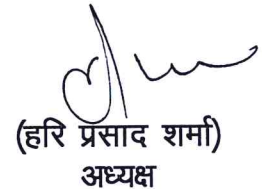 (हरि प्रसाद शर्मा)
अध्यक्ष